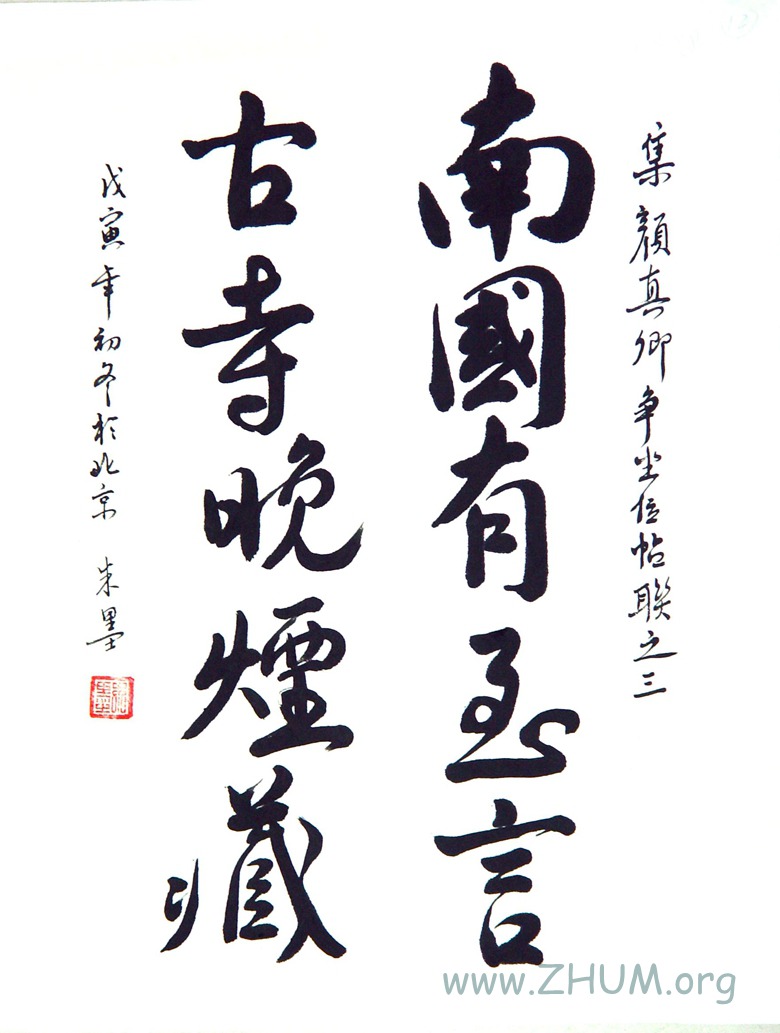 集顏真卿争坐位帖聯之三
南國有至言
古寺晚煙藏
戊寅年初冬於北京 朱墨
www.ZHUM.org